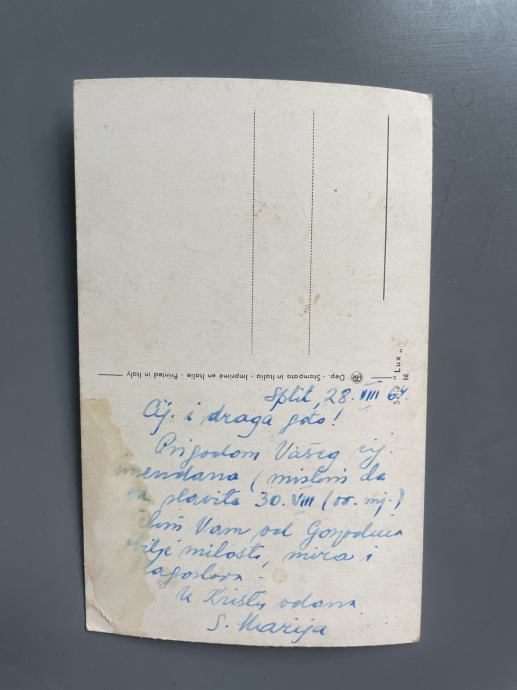 Dep. - Stampato in Italia - Imprimé en Italie - Printed in Italy
"Lux"
56
Split, 28. VIII 64.
Cij. i draga gđo!
Prigodom Vašeg cij.
imendana (mislim da
ga slavite 30. VIII (ov. mj.)
želim Vam od Gospodina
obilje milosti, mira i
blagoslova.
U Kristu odana
S. Marija